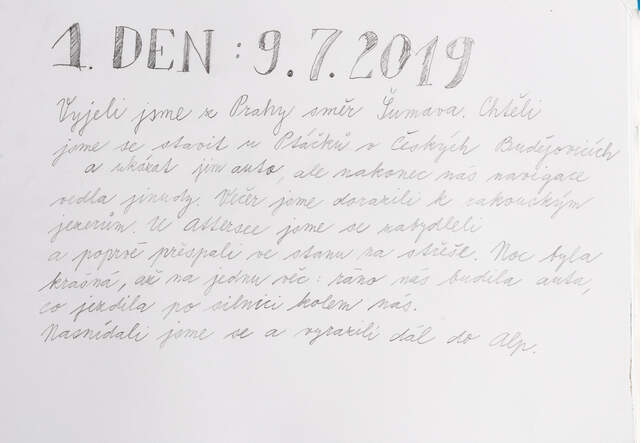 1. DEN : 9.7.2019
Vyjeli jsme z Prahy směr Šumava. Chtěli
jsme se stavit u Ptáčků v Českých Budějovicích
a ukázat jim auto, ale nakonec nás navigace
vedla jinudy. Večer jsme dorazili k rakouckým
jezerům. U Attersee jsme se zabydleli
a poprvé přespali ve stanu na střeše. Noc byla
krásná, až na jednu věc: ráno nás budila auta,
co jezdila po silnici kolem nás.
Nasnídali jsme se a vyrazili dál do Alp.